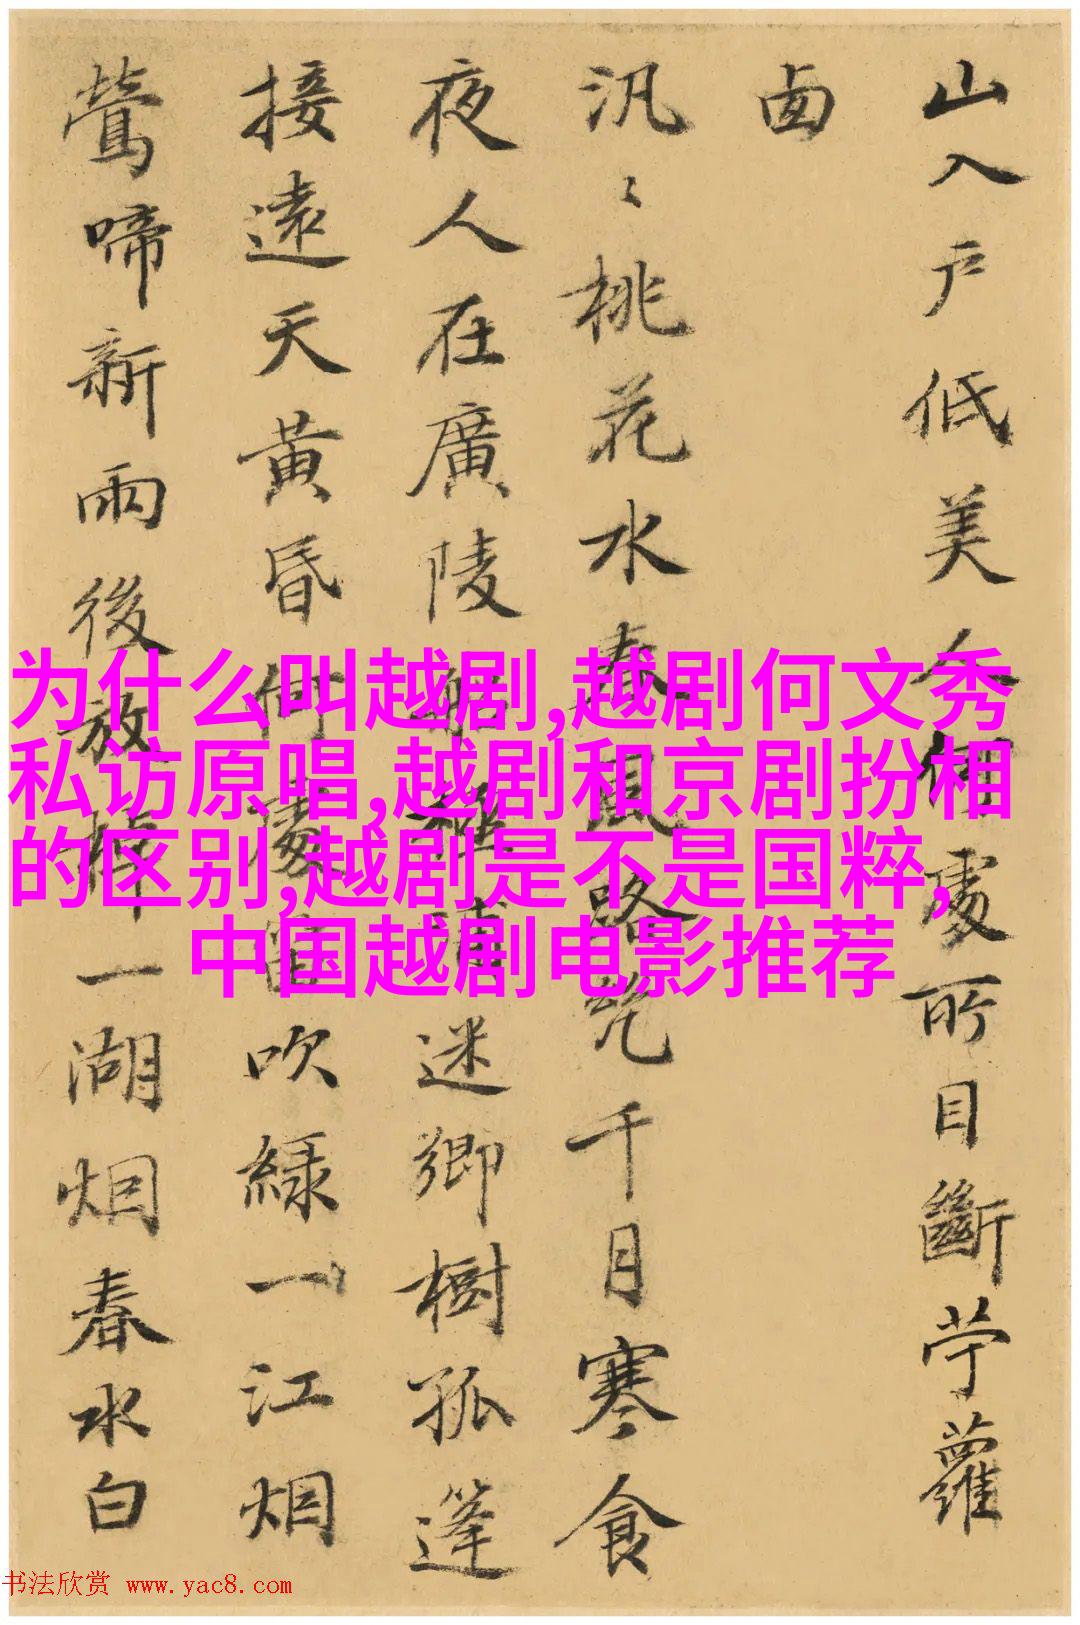 山入戸低美人何處所目斷苧蘿
鹵
汎〻桃花水春風路繞千月寒食
夜人在廣陵迷卿樹孤篷
接遠天黄昏何處吹綠一江烟
鶯啼新雨後放棹一湖烟春水白
为什么叫越剧,越剧何文秀
私访原唱,越剧和京剧扮相
的区别,越剧是不是国粹,
中国越剧电影推荐
书法欣赏 www.yac8.com